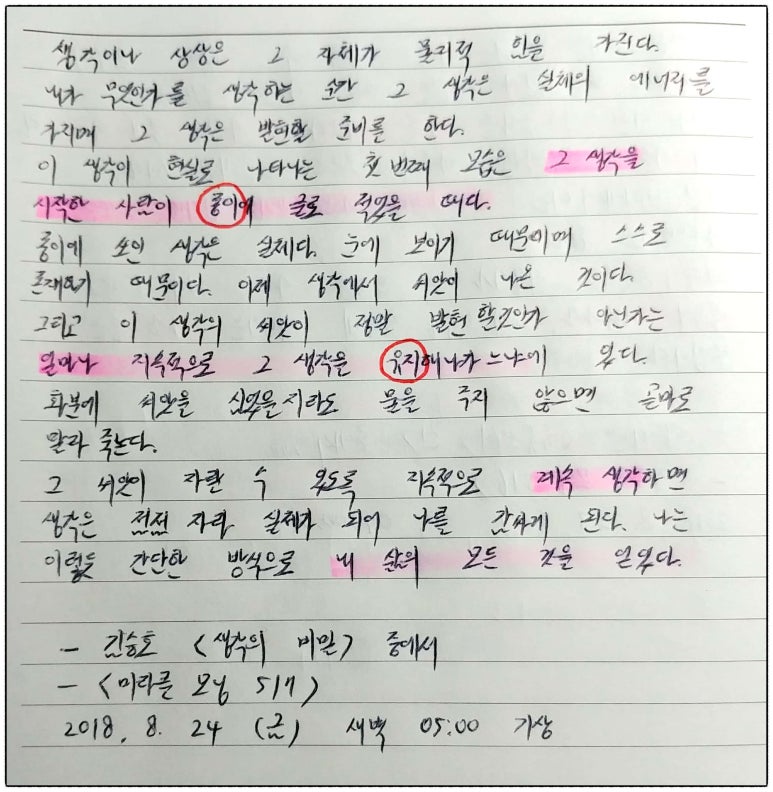 생각이나 상상은 그 자체가 물리적 힘을 가진다.
내가 무엇인가를 생각하는 순간 그 생각은 실체의 에너지를
가지며 그 생각은 발현할 준비를 한다.
이 생각이 현실로 나타나는 첫 번째 모습은 그 생각을
시작한 사람이 종이에 글로 적었을 때다.
종이에 쓰인 생각은 실제다. 눈에 보이기 때문이며 스스로
존재하기 때문이다. 이제 생각에서 씨앗이 나온 것이다.
그리고 이 생각의 씨앗이 정말 발현 할것인가 아닌가는
얼마나 지속적으로 그 생각을 유지해나가느냐에 있다.
화분에 씨앗을 심었을지라도 물을 주지 않으면 곧바로
말라 죽는다.
그 씨앗이 자랄 수 있도록 지속적으로 계속 생각하면
생각은 점점 자라 실체가 되어 나를 감싸게 된다. 나는
이렇듯 간단한 방식으로 내 삶의 모든 것을 얻었다.
- 김승호 <생각의 비밀> 중에서
- <미라클 모닝 517>
2018. 8. 24 (금) 새벽 05:00 기상